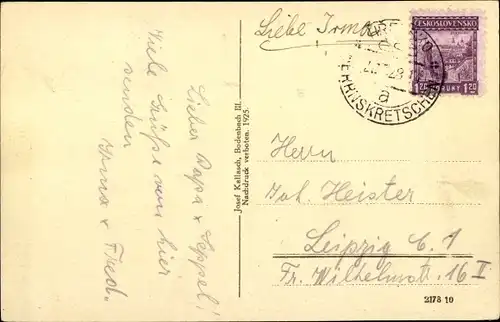 Liebe Irma
ČESKOSLOVENSKO
1.20 1.20
HERRNSKRETSCHEN
a
Lieber Papa x Seppel!
Viele Grüße von hier
senden
Irma x Fred.
Josef Kallasch, Bodenbach III.
Nachdruck verboten. 1925.
Herrn
Joh. Heister
Leipzig C. 1
Fr. Wilhelmstr. 16 II
2178 10